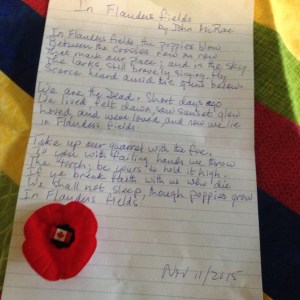 In Flanders fields
by John McRae
In Flanders fields the poppies blow
Between the crosses, row on row
That mark our place; and in the sky
The larks still bravely singing, fly
Scarce heard amid the guns below.
We are the Dead. Short days ago
We lived, felt dawn, saw sunset glow
Loved, and were loved and now we lie
in Flanders fields
Take up our quarrel with the foe,
To you with failing hands we throw
The torch; be yours to hold it high.
If ye break faith with us who die
We shall not sleep, though poppies grow
In Flanders fields.
Nov 11/2015